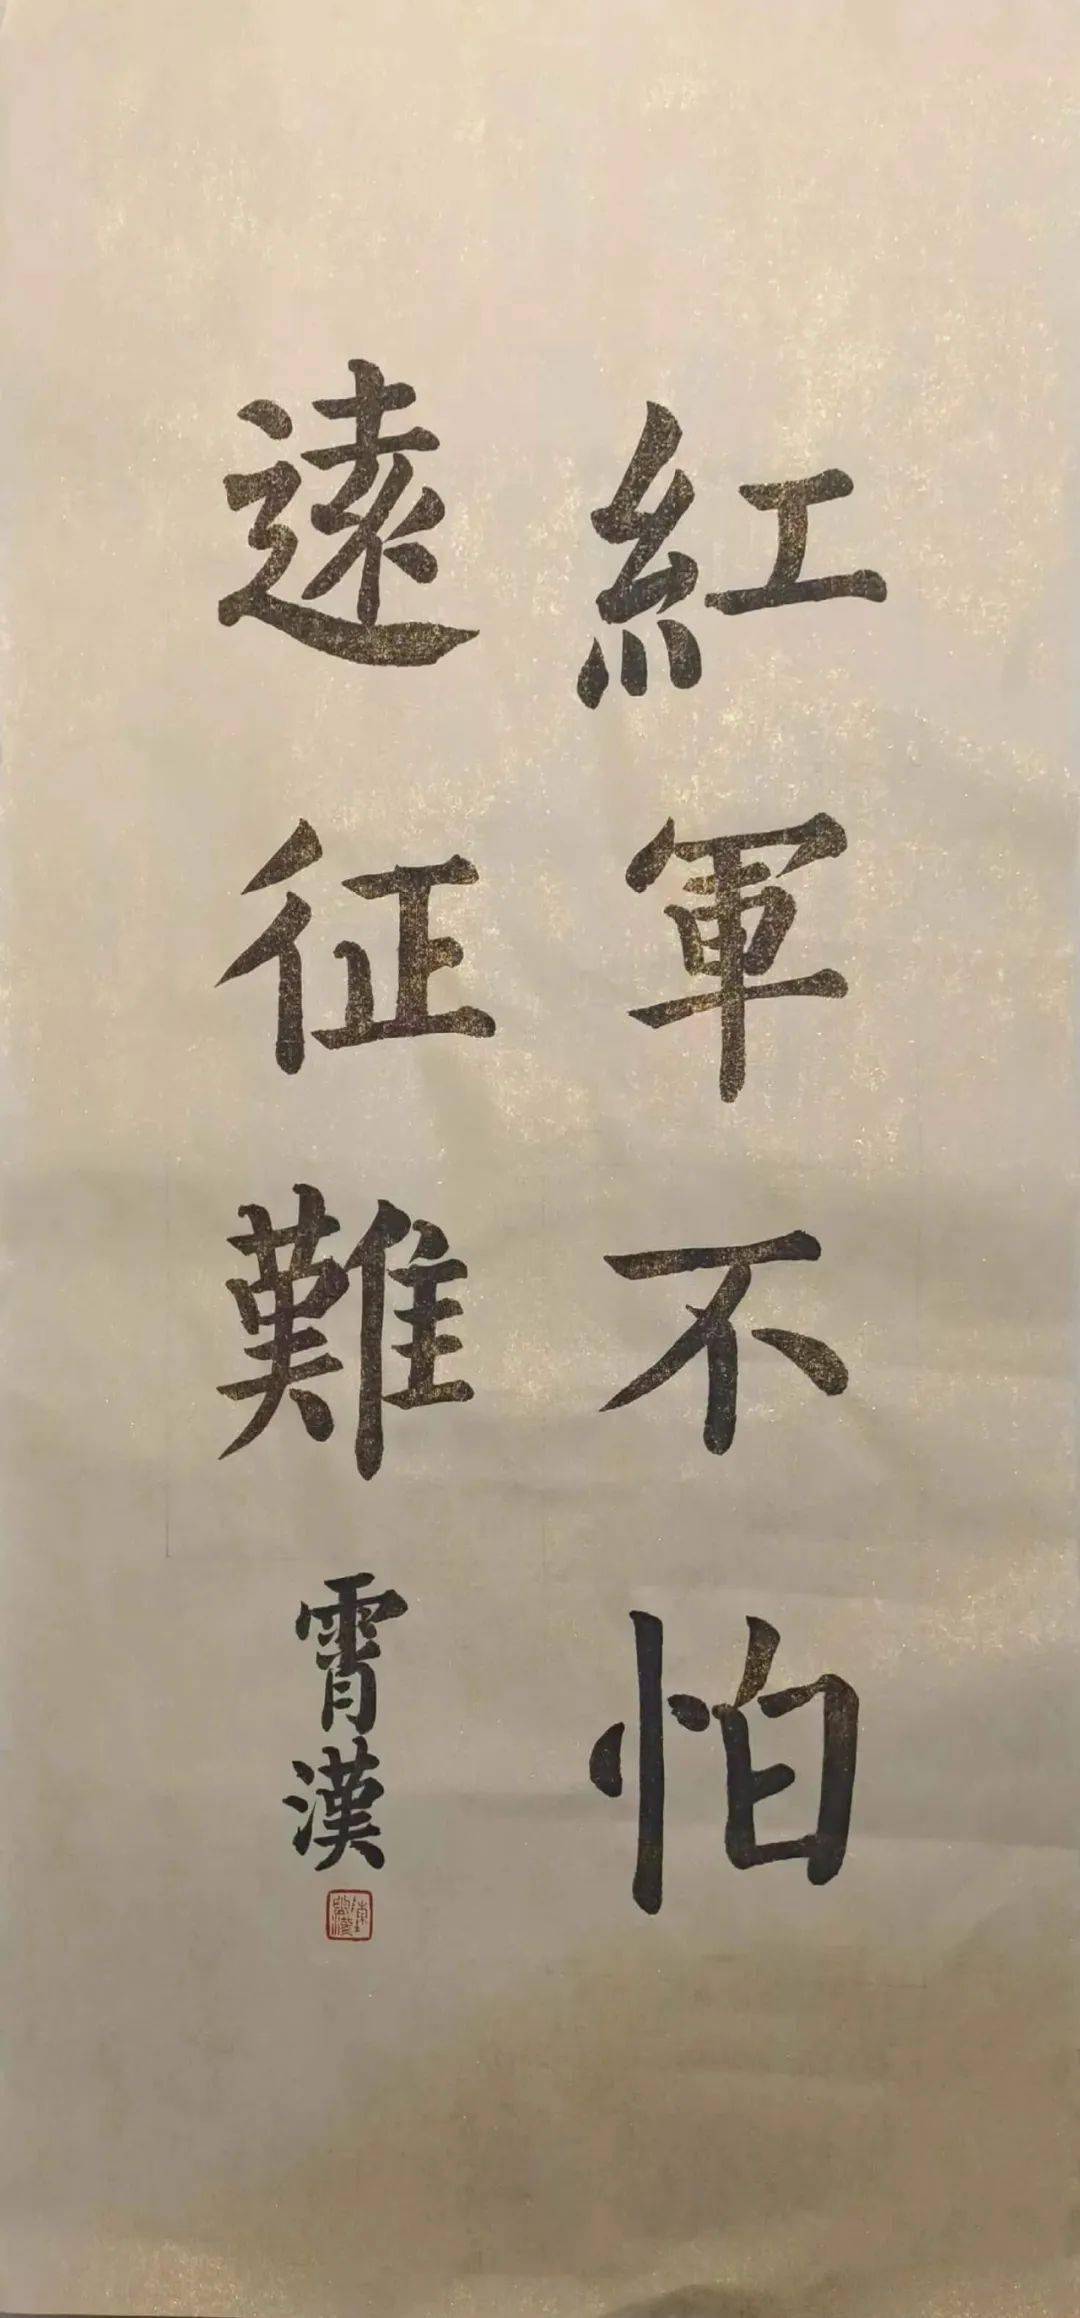 紅軍不怕
遠征難
霄漢